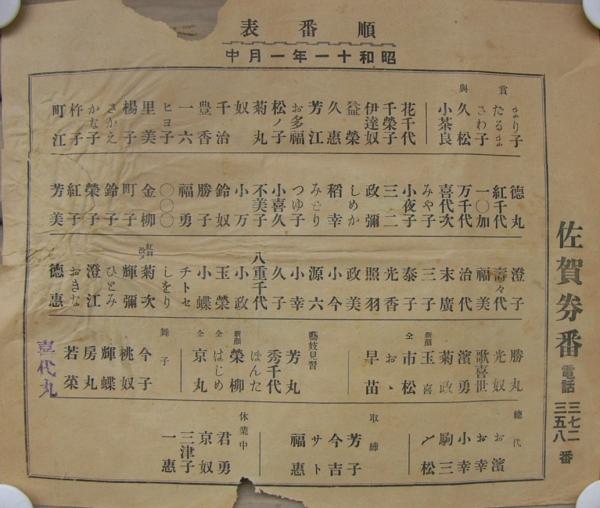 順番表
昭和十一年一月中
佐賀券番 電話 三七二 三五八 番
賞
まり子
たるま
さわ子
與
久松
小茶良
花千代
千榮子
伊達奴
益榮
久惠
芳江
お多福
松ノ子
菊丸
奴
千治
豊香
一六
ヒヨ子
里美
楊子
さかえ
かな子
杵子
町江
德丸
紅千代
一〇加
万千代
喜代次
みや子
小夜子
三二
政彌
しめか
稻幸
みどり
つゆ子
小喜久
不美子
小万
鈴奴
勝子
福勇
〇〇〇
金柳
町子
鈴子
榮子
紅子
芳美
澄子
壽々代
福美
治代
末廣
三子
泰子
光香
照羽
政美
小今
源六
小幸
久子
八重千代
小政
玉榮
小蝶
チトセ
しをり
菊次
輝彌
ひとみ
澄江
おきな
德惠
勝丸
光奴
歌喜世
濱勇
菊政
新顔
玉喜
仝
市松
おゝ
早苗
藝妓見習
芳丸
秀千代
ぽんた
新顔
榮柳
仝
はじめ
仝
京丸
舞子
今子
桃奴
輝蝶
房丸
若菜
喜代丸
總代
お濱
お幸
小幸
駒三
松
取締
芳子
今吉
サト
福惠
休業中
君勇
京奴
三津子
一惠